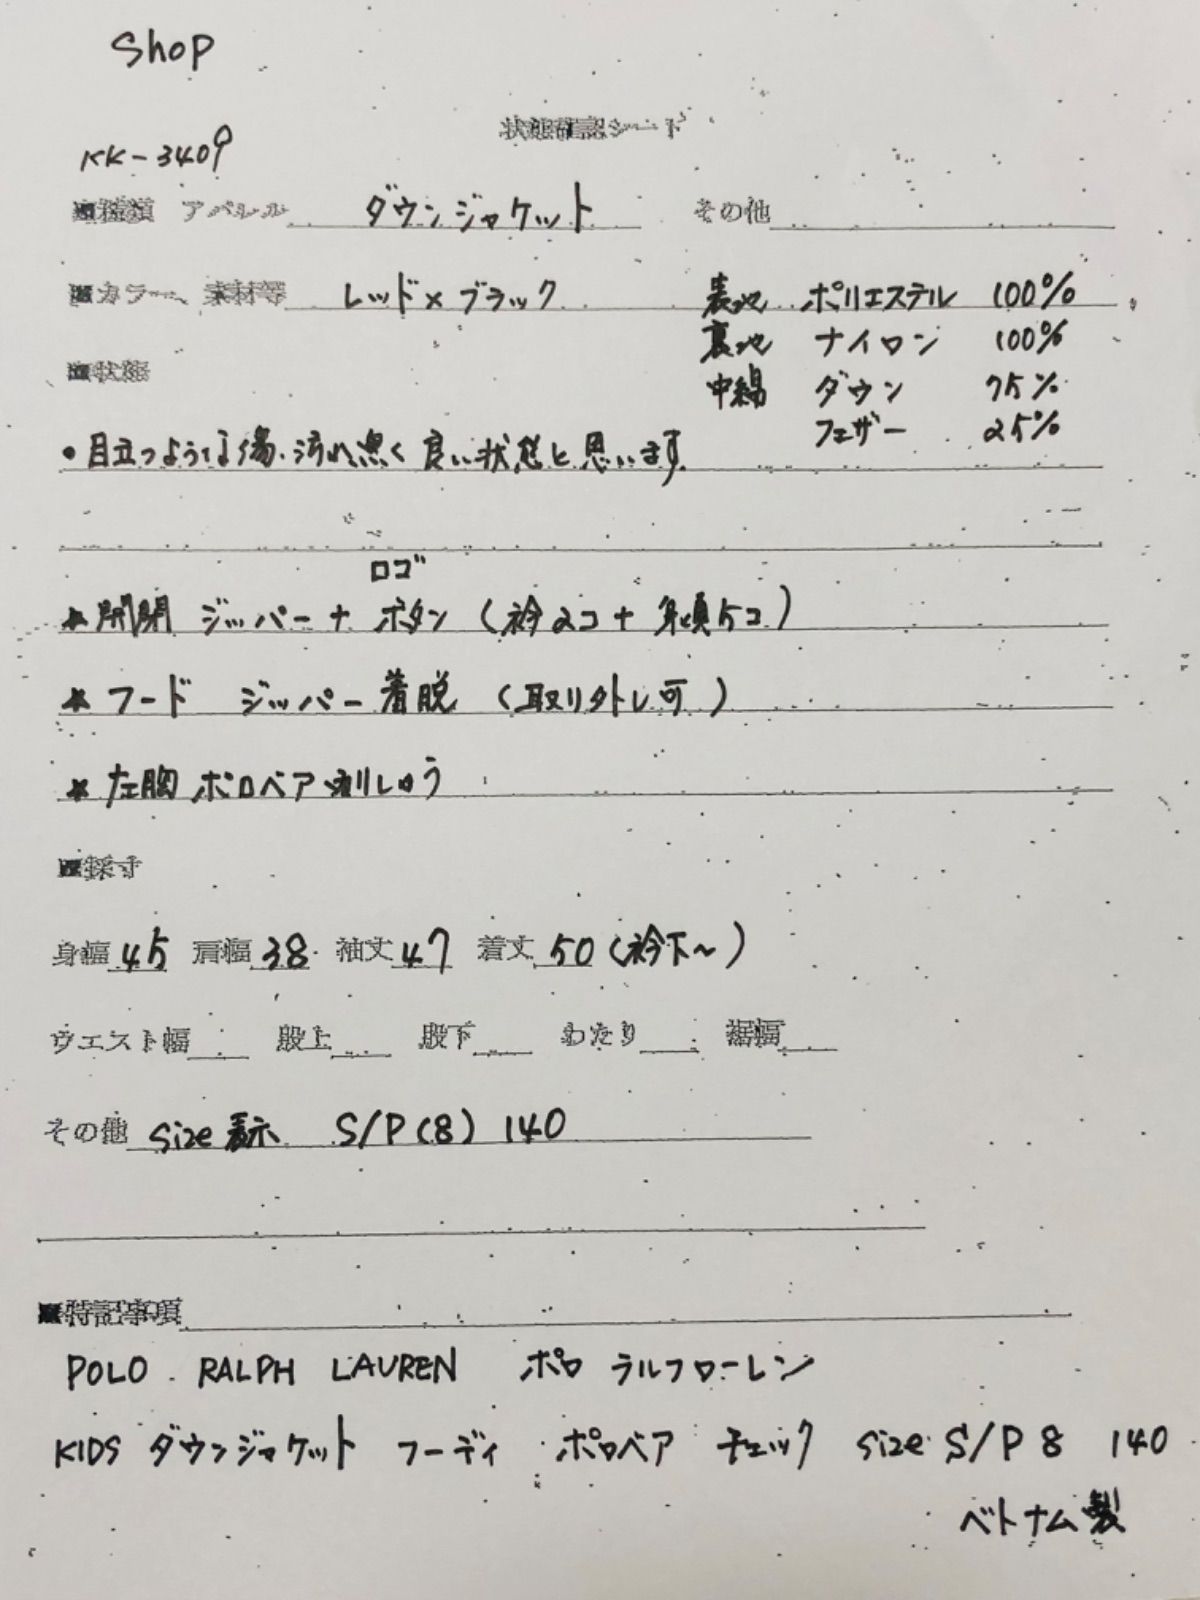 Shop
状態確認シート
KK-3409
■種類 アパレル ダウンジャケット その他
■カラー、素材等 レッド×ブラック 表地 ポリエステル 100%
裏地 ナイロン 100%
■状態
中綿 ダウン 75%
フェザー 25%
•目立つような傷、汚れ無く良い状態と思います
ロゴ
★開閉 ジッパー+ボタン(衿2コ+身頃5コ)
★フード ジッパー着脱 (取り外し可)
★左胸ポロベア刺しゅう
■採寸
身幅45 肩幅38 袖丈47 着丈50(衿下〜)
ウエスト幅 股上 股下 わたり 裾幅
その他 size表示 S/P(8) 140
■特記事項
POLO RALPH LAUREN ポロ ラルフローレン
KIDS ダウンジャケット フーディ ポロベア チェック size S/P 8 140
ベトナム製